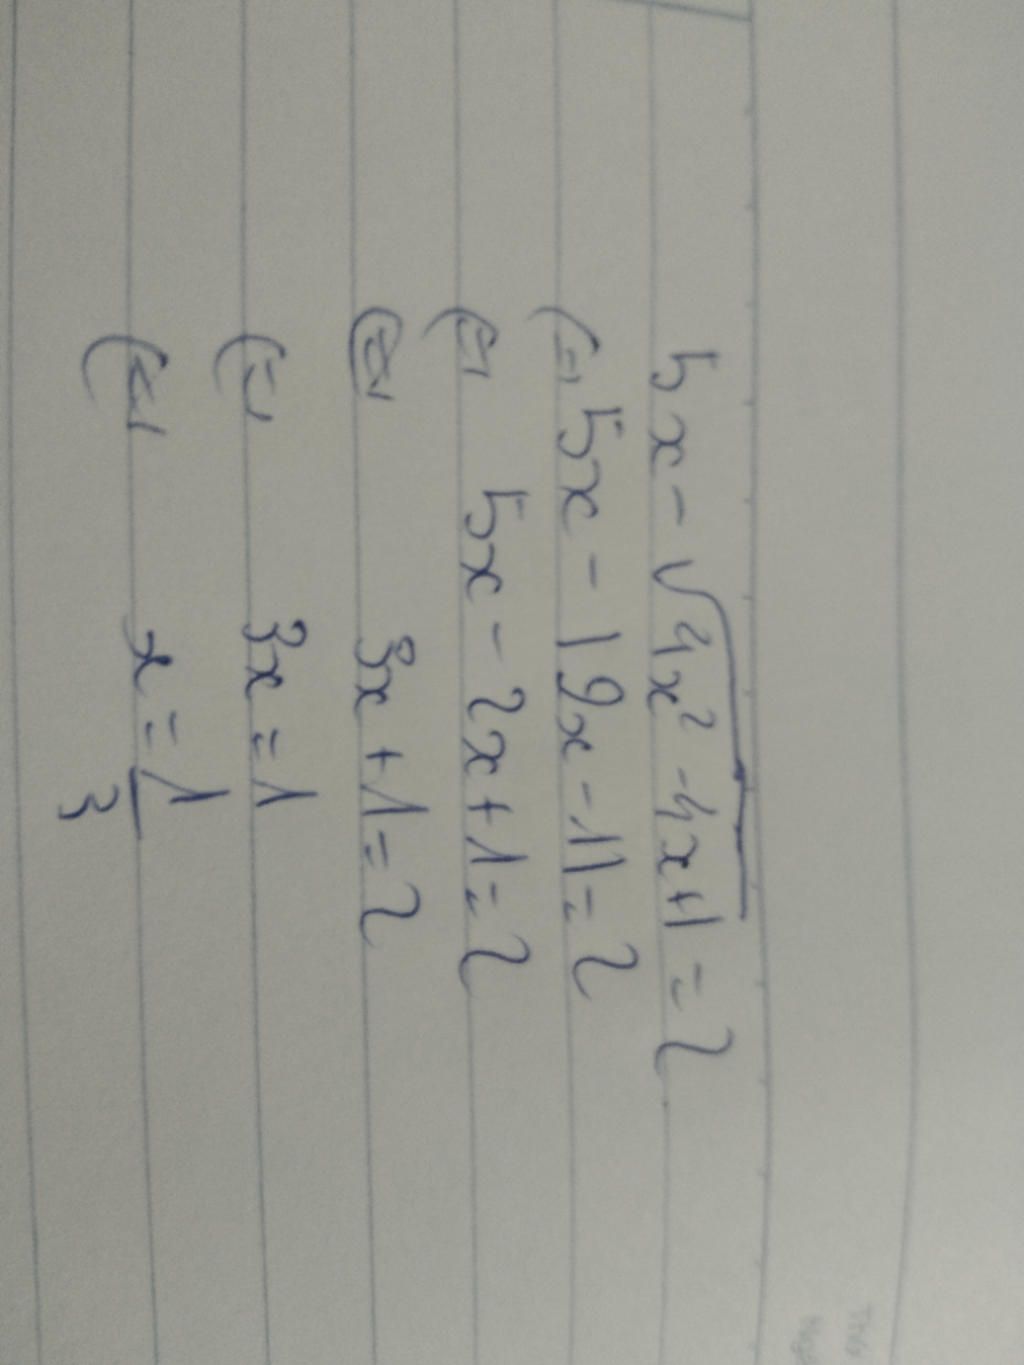 5x - √4x² - 4x+1 = 2
⇔ 5x - |2x - 1| = 2
⇔ 5x - 2x + 1 = 2
⇔ 3x + 1 = 2
⇔ 3x = 1
⇔ x = 1/3